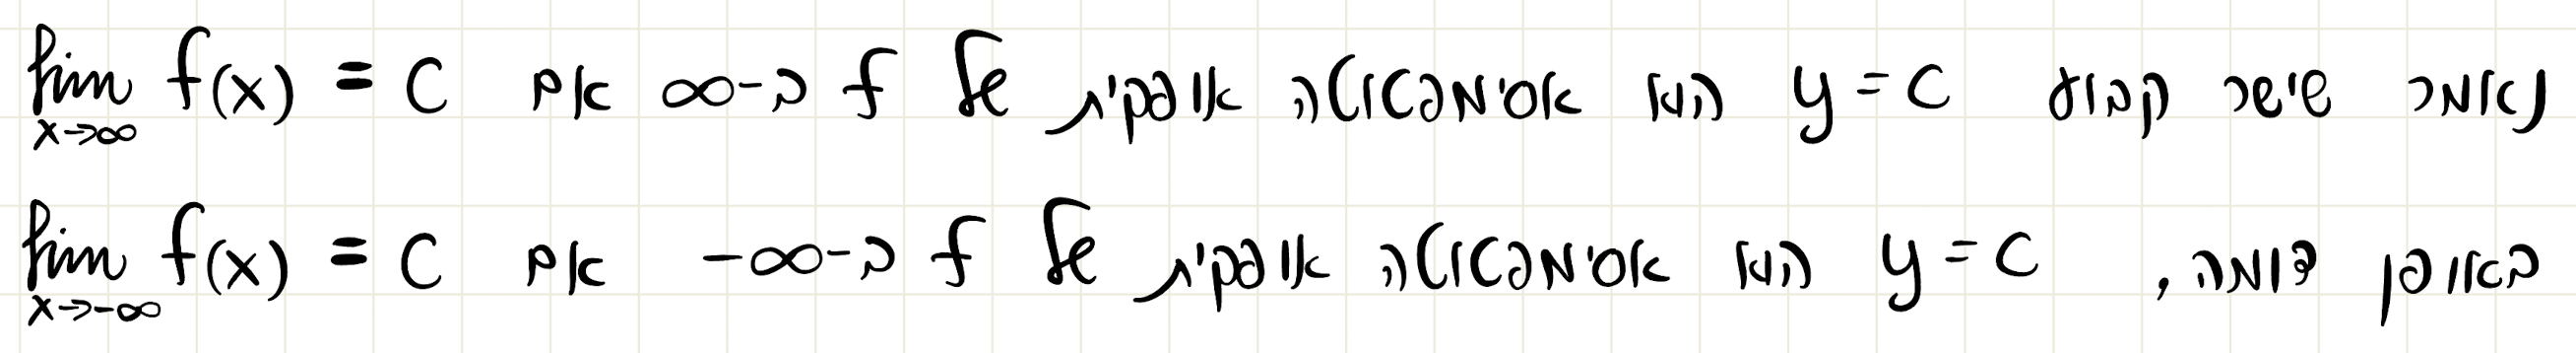 נאמר שישר קבוע y = c הוא אסימפטוטה אופקית של f ב-∞ אם lim_{x→∞} f(x) = c
באופן דומה, y = c הוא אסימפטוטה אופקית של f ב-∞- אם lim_{x→-∞} f(x) = c